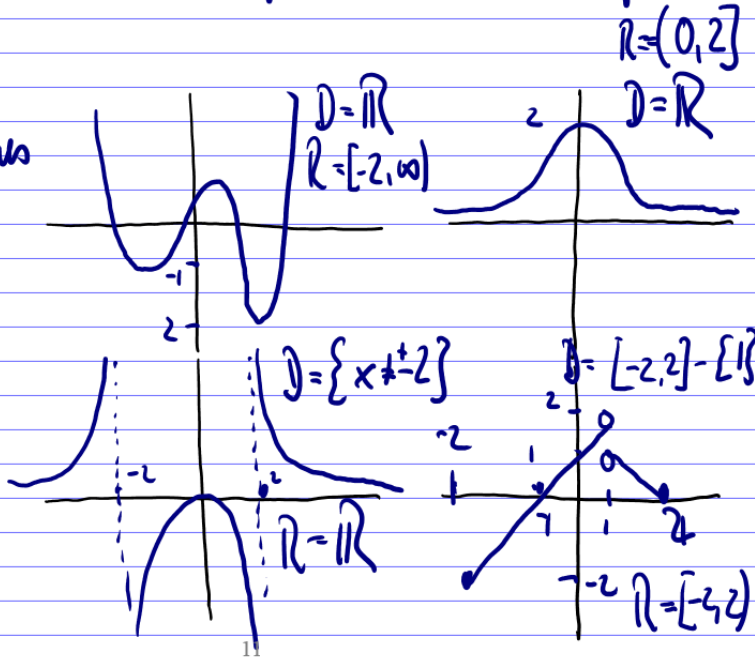 R=(0,2]
D=ℝ
2
D=ℝ
R=[-2,∞)
-1
2
D={x≠±2}
-2
2
R=ℝ
D=[-2,2]-{1}
2
-2
1
-1
1
2
-2
R=[-2,2)
11